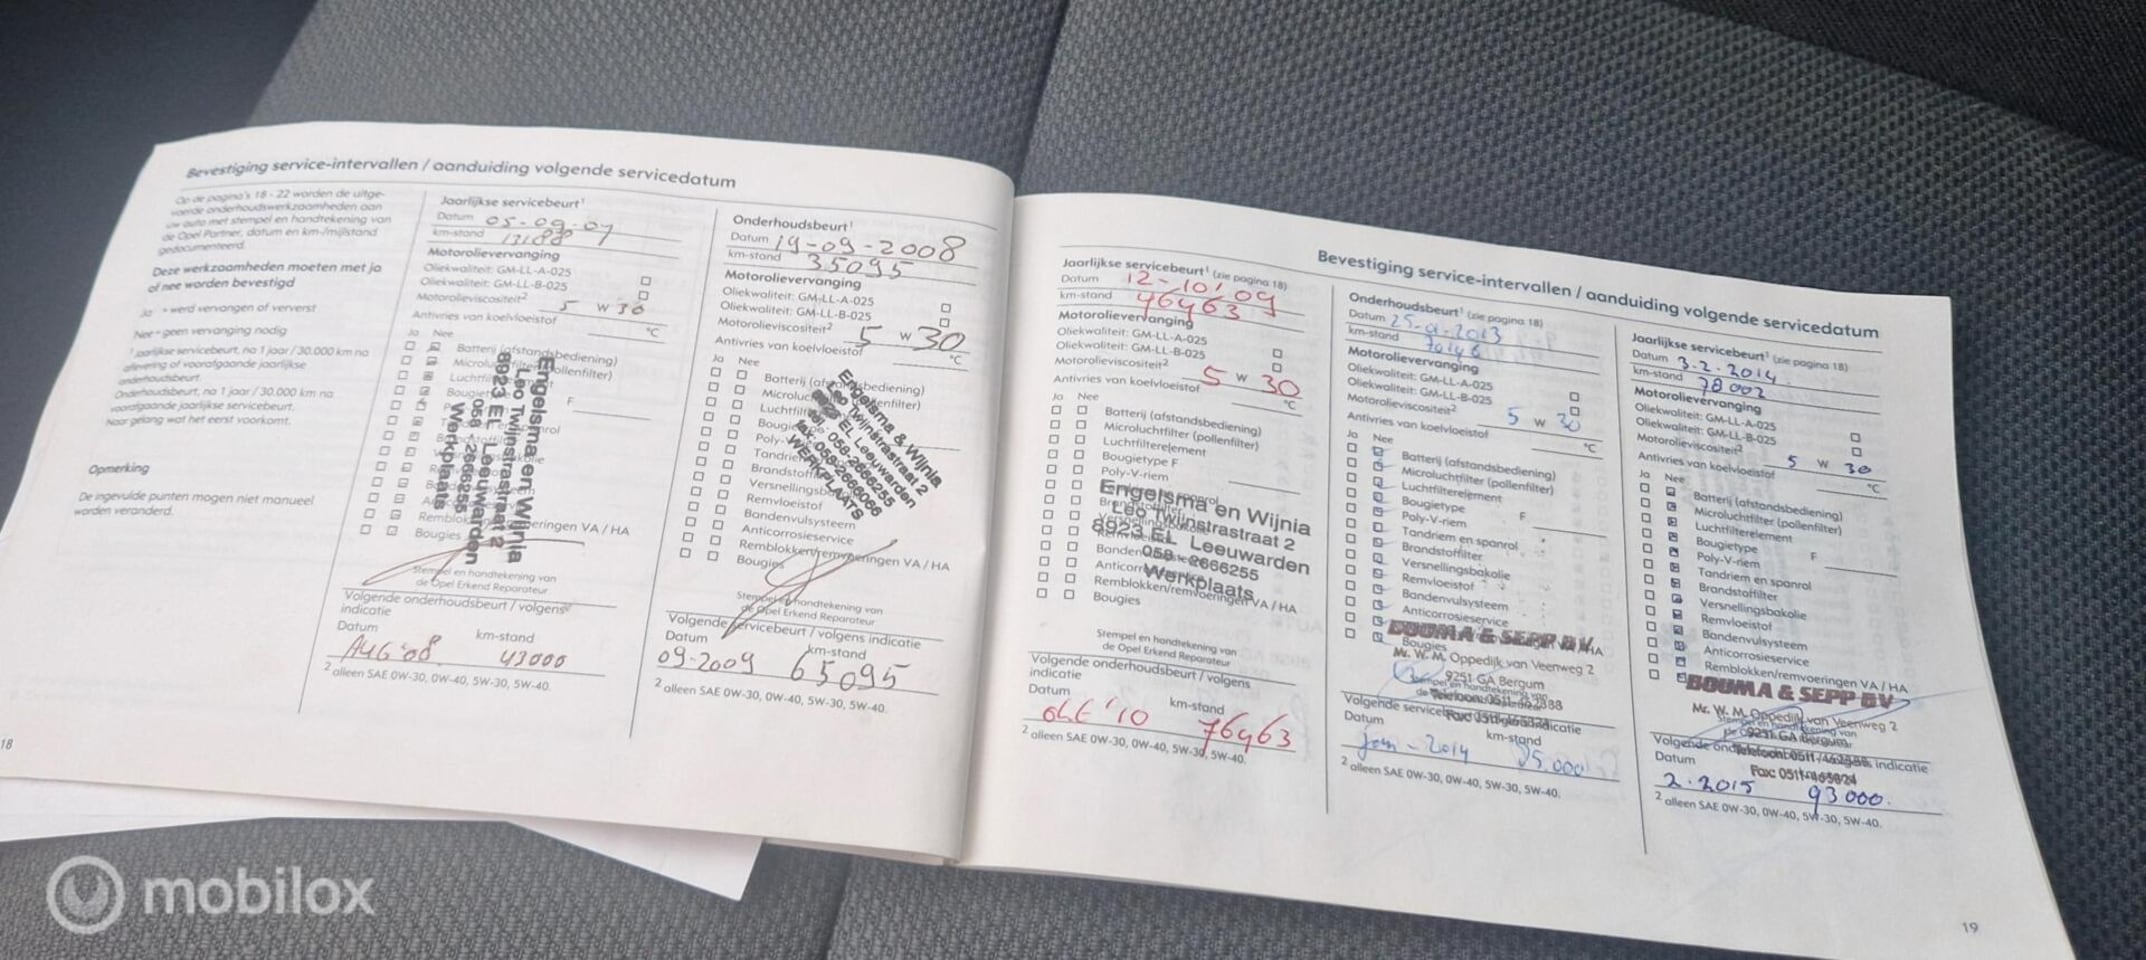 Bevestiging service-intervallen / aanduiding volgende servicedatum
Op de pagina's 18 - 22 worden de uitge-
voerde onderhoudswerkzaamheden aan
uw auto met stempel en handtekening van
de Opel Partner, datum en km-/mijlstand
gedocumenteerd.
Deze werkzaamheden moeten met ja
of nee worden bevestigd
Ja = werd vervangen of ververst
Nee = geen vervanging nodig
1 Jaarlijkse servicebeurt, na 1 jaar / 30.000 km na
aflevering of voorafgaande jaarlijkse
onderhoudsbeurt.
Onderhoudsbeurt, na 1 jaar / 30.000 km na
voorafgaande jaarlijkse servicebeurt.
Naar gelang wat het eerst voorkomt.
Opmerking
De ingevulde punten mogen niet manueel
worden veranderd.
18
Jaarlijkse servicebeurt1
Datum 05-09-07
km-stand
Motorolievervanging
Oliekwaliteit: GM-LL-A-025
Oliekwaliteit: GM-LL-B-025
Motorolieviscositeit2 5 W 30
Antivries van koelvloeistof °C
Ja Nee
Batterij (afstandsbediening)
F
Bougies
Engelsma en Wijnia
Leo Twijnstrastraat 2
8923 EL Leeuwarden
058 - 2666255
Werkplaats
Stempel en handtekening van
de Opel Erkend Reparateur
Volgende onderhoudsbeurt / volgens
indicatie
Datum km-stand
AUG '08 43000
2 alleen SAE 0W-30, 0W-40, 5W-30, 5W-40.
Onderhoudsbeurt1
Datum 19-09-2008
km-stand 35095
Motorolievervanging
Oliekwaliteit: GM-LL-A-025
Oliekwaliteit: GM-LL-B-025
Motorolieviscositeit2 5 W 30
Antivries van koelvloeistof °C
Ja Nee
Batterij (afstandsbediening)
Versnellingsbakolie
Remvloeistof
Bandenvulsysteem
Anticorrosieservice
Remblokken/remvoeringen VA / HA
Bougies
Engelsma & Wijnia
Leo Twijnstrastraat 2
8923 EL Leeuwarden
tel. 058-2666255
fax. 058-2666066
WERKPLAATS
Stempel en handtekening van
de Opel Erkend Reparateur
Volgende servicebeurt / volgens indicatie
Datum km-stand
09-2009 65095
2 alleen SAE 0W-30, 0W-40, 5W-30, 5W-40.
Bevestiging service-intervallen / aanduiding volgende servicedatum
Jaarlijkse servicebeurt1 (zie pagina 18)
Datum 12-10'09
km-stand 46463
Motorolievervanging
Oliekwaliteit: GM-LL-A-025
Oliekwaliteit: GM-LL-B-025
Motorolieviscositeit2 5 W 30
Antivries van koelvloeistof °C
Ja Nee
Batterij (afstandsbediening)
Microluchtfilter (pollenfilter)
Luchtfilterelement
Bougietype F
Poly-V-riem
Engelsma en Wijnia
Leo Twijnstrastraat 2
8923 EL Leeuwarden
058 - 2666255
Werkplaats
Remblokken/remvoeringen VA / HA
Bougies
Stempel en handtekening van
de Opel Erkend Reparateur
Volgende onderhoudsbeurt / volgens
indicatie
Datum km-stand
okt '10 76463
2 alleen SAE 0W-30, 0W-40, 5W-30, 5W-40.
Onderhoudsbeurt1 (zie pagina 18)
Datum 25-01-2013
km-stand 70146
Motorolievervanging
Oliekwaliteit: GM-LL-A-025
Oliekwaliteit: GM-LL-B-025
Motorolieviscositeit2 5 W 30
Antivries van koelvloeistof °C
Ja Nee
Batterij (afstandsbediening)
Microluchtfilter (pollenfilter)
Luchtfilterelement
Bougietype F
Poly-V-riem
Tandriem en spanrol
Brandstoffilter
Versnellingsbakolie
Remvloeistof
Bandenvulsysteem
Anticorrosieservice
BOUMA & SEPP BV
Bougies
Mr. W. M. Oppedijk van Veenweg 2
9251 GA Bergum
Volgende servicebeurt / volgens indicatie
Datum km-stand
jan - 2014 85.000
2 alleen SAE 0W-30, 0W-40, 5W-30, 5W-40.
Jaarlijkse servicebeurt1 (zie pagina 18)
Datum 3.2.2014
km-stand 78002
Motorolievervanging
Oliekwaliteit: GM-LL-A-025
Oliekwaliteit: GM-LL-B-025
Motorolieviscositeit2 5 W 30
Antivries van koelvloeistof °C
Ja Nee
Batterij (afstandsbediening)
Microluchtfilter (pollenfilter)
Luchtfilterelement
Bougietype F
Poly-V-riem
Tandriem en spanrol
Brandstoffilter
Versnellingsbakolie
Remvloeistof
Bandenvulsysteem
Anticorrosieservice
Remblokken/remvoeringen VA / HA
BOUMA & SEPP BV
Mr. W. M. Oppedijk van Veenweg 2
9251 GA Bergum
Datum
2.2015 93000.
2 alleen SAE 0W-30, 0W-40, 5W-30, 5W-40.
19
mobilox